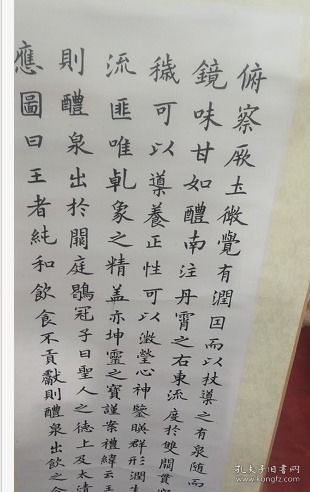 俯察厥土微覺有潤因而以杖導之有泉隨而
鏡味甘如醴南注丹霄之右東流度於雙闕貫
穢可以導養正性可以澂瑩心神鑒暎群形潤生
流匪唯乹象之精盖亦坤靈之寶謹案禮緯云王
則醴泉出於闕庭鶡冠子曰聖人之德上及太清
應圖曰王者純和飲食不貢獻則醴泉出飲之令
孔夫子旧书网